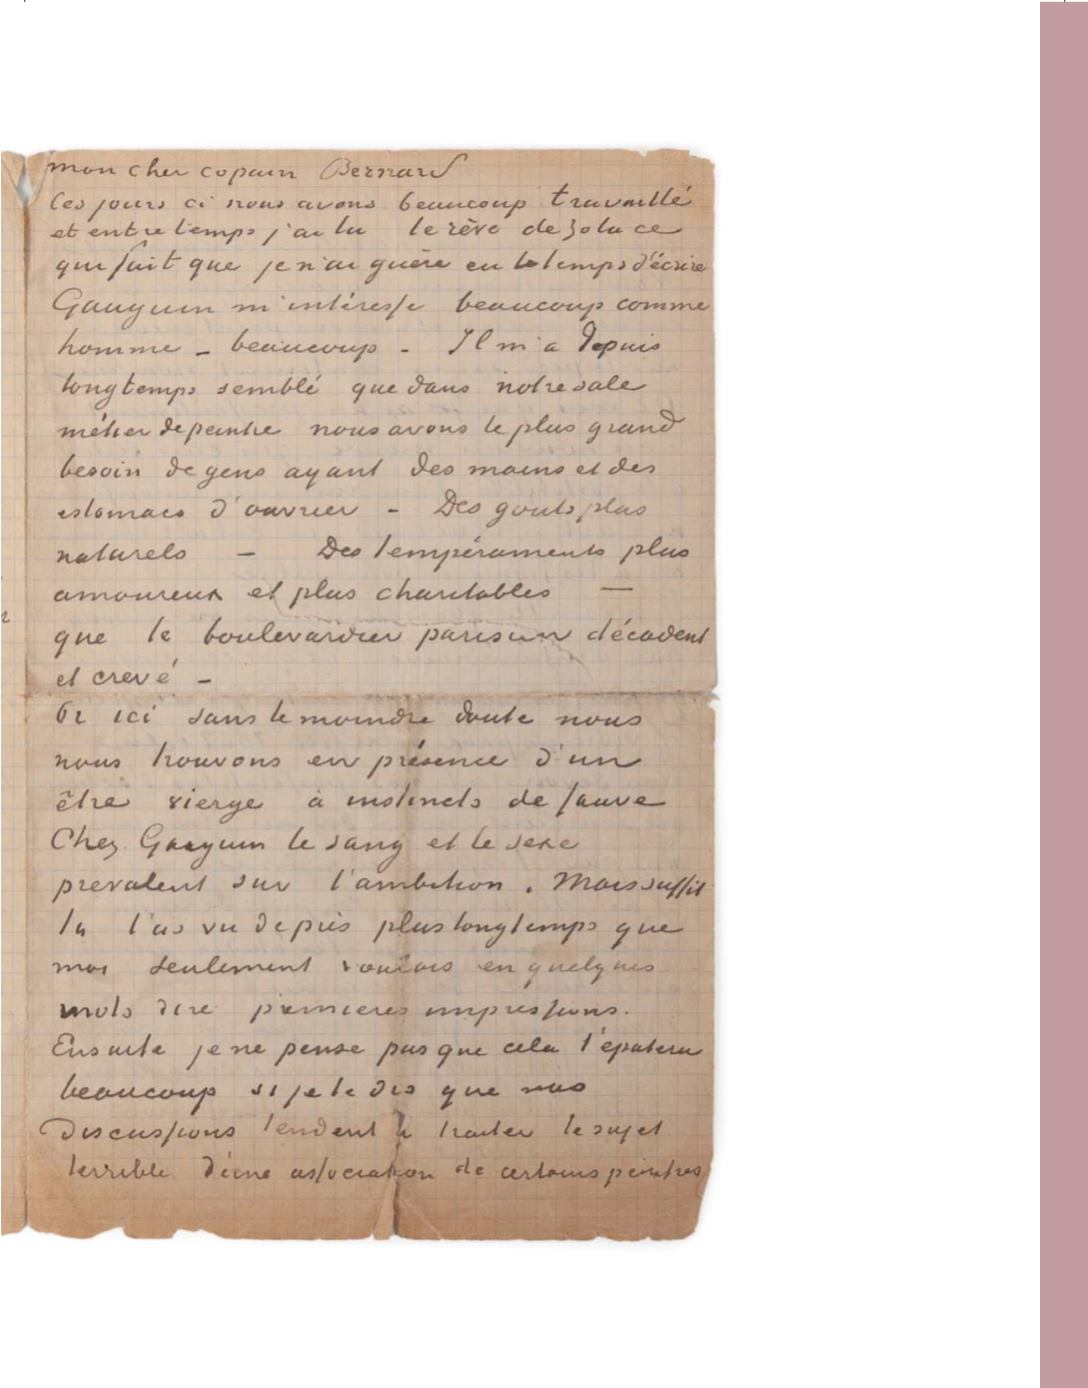 mon cher copain Bernard
Ces jours ci nous avons beaucoup travaillé
et entretemps j'ai lu le rève de Zola ce
qui fait que je n'ai guère eu le temps d'écrire
Gauguin m'intéresse beaucoup comme
homme – beaucoup – Il m'a depuis
longtemps semblé que dans notre sale
métier de peintre nous avons le plus grand
besoin de gens ayant des mains et des
estomacs d'ouvrier – Des gouts plus
naturels – Des tempéraments plus
amoureux et plus charitables —
que le boulevardier parisien décadent
et crevé –
Or ici sans le moindre doute nous
nous trouvons en présence d'un
être vierge à instincts de fauve
Chez Gauguin le sang et le sexe
prevalent sur l'ambition. Mais suffit
tu l'as vu de près plus longtemps que
moi seulement voulais en quelques
mots dire premieres impressions.
Ensuite je ne pense pas que cela t'épatera
beaucoup si je te dis que nos
Discussions tendent à traiter le sujet
terrible d'une association de certains peintres